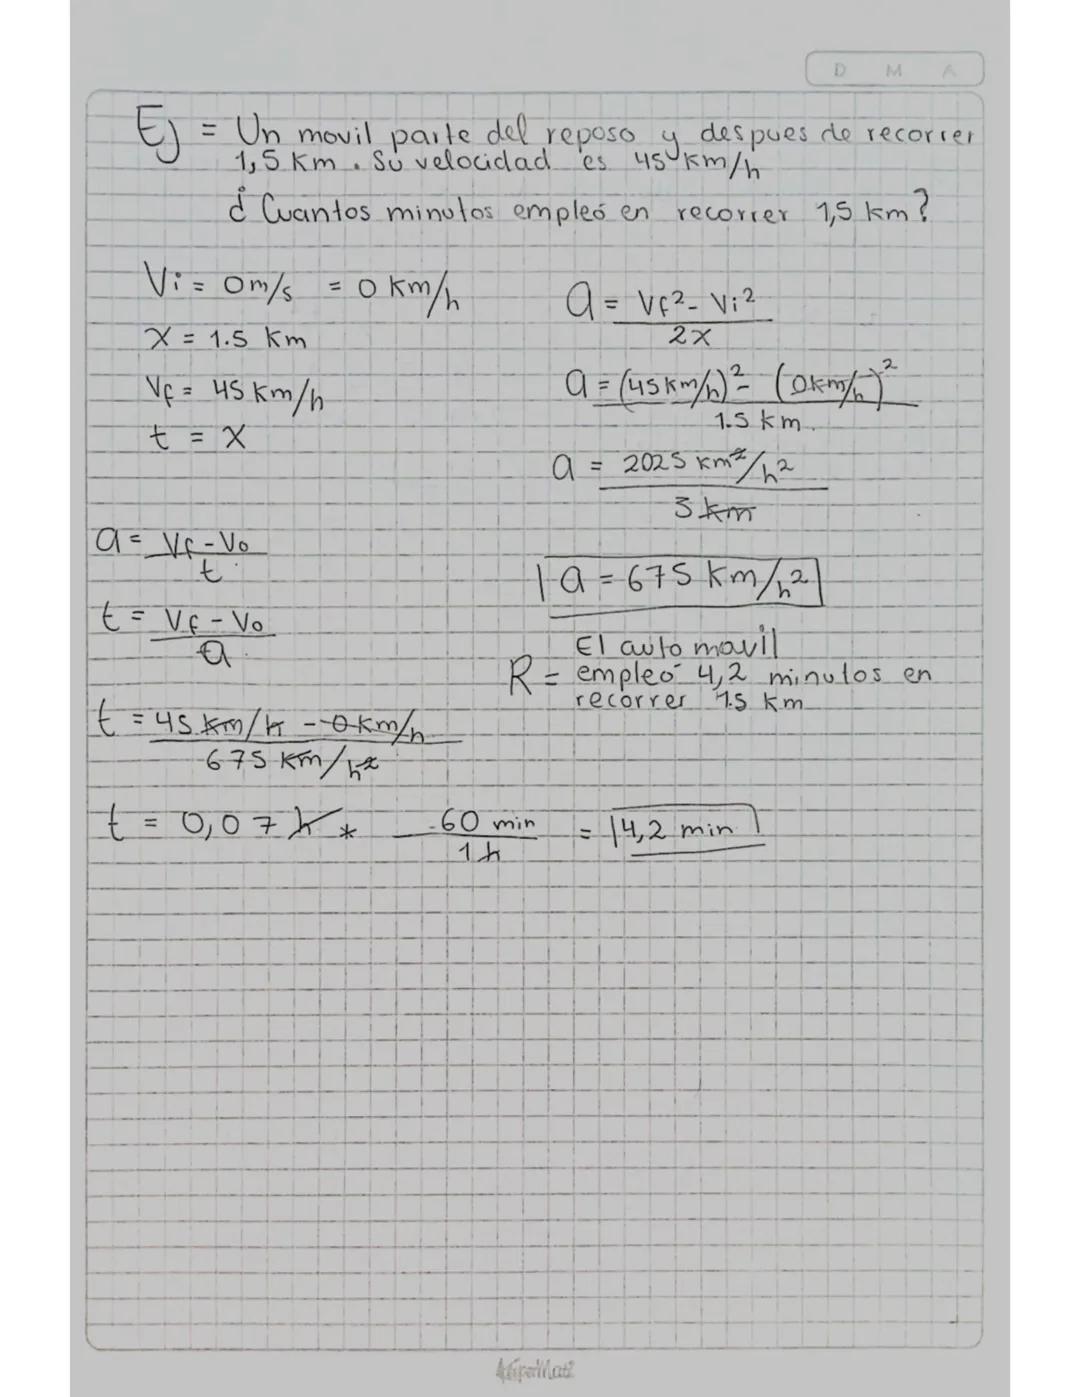 D M A
Ej = Un movil parte del reposo y despues de recorrer
1,5 Km. Su velocidad es 45 km/h
¿ Cuantos minutos empleó en recorrer 1,5 km?
Vi = 0m/s = 0 Km/h
X = 1.5 Km
Vf = 45 Km/h
t = X
a = Vf² - Vi²
2X
a = (45Km/h)² - (0km/h)²
1.5 km.
a = 2025 Km²/h²
3 km
a = 675 Km/h²
a = Vf - Vo
t
t = Vf - Vo
a
t = 45 km/h - 0 km/h
675 Km/h²
t = 0,07 h * 60 min = 4,2 min
1 h
El auto movil
R = empleó 4,2 minutos en
recorrer 1.5 Km